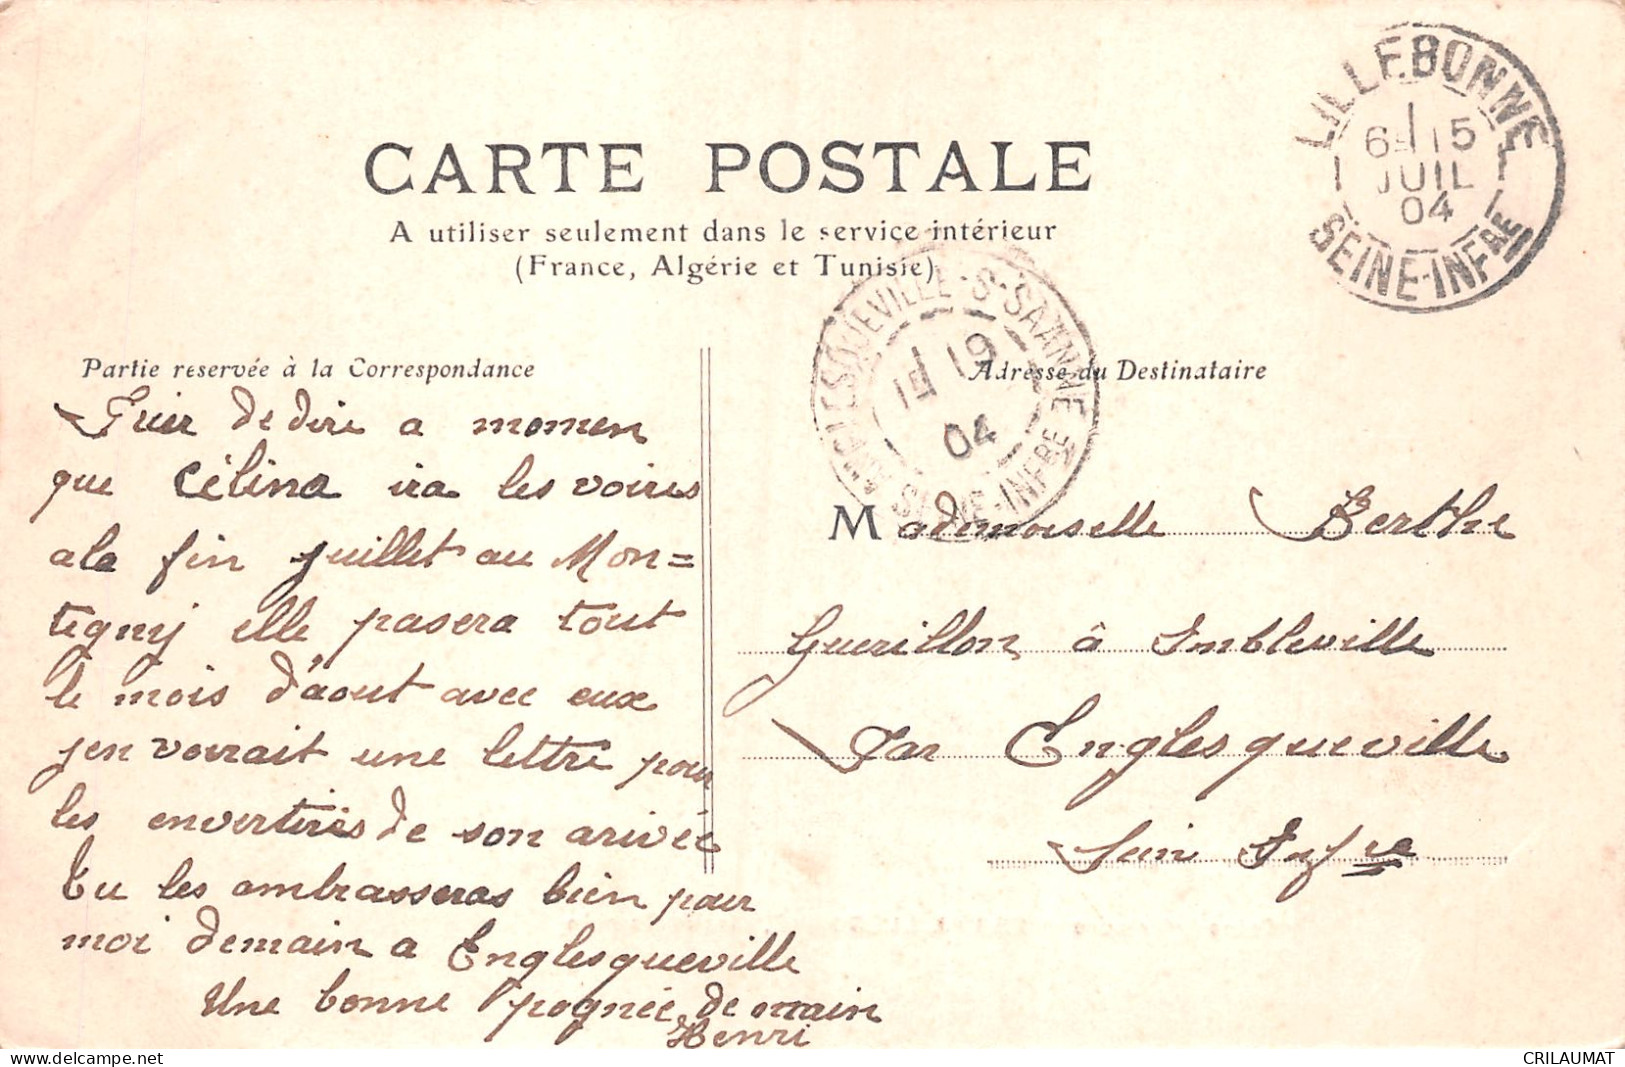 CARTE POSTALE
A utiliser seulement dans le service intérieur
(France, Algérie et Tunisie)
LILLEBONNE
6 15
JUIL
04
SEINE-INFRE
ANGLESQUEVILLE-S-SAANNE
15 19
04
SEINE-INFRE
Partie reservée à la Correspondance
Prier de dire a momen
que Célina ira les voires
a la fin juillet au Mon=
tigny elle pasera tout
le mois d'aout avec eux
jen voirait une lettre pour
les envertires de son arivée
Tu les ambrasseras bien pour
moi demain a Englesqueville
Une bonne pognée de main
Henri
Adresse du Destinataire
Mademoiselle Berthe
Guerillon à Imbleville
Par Englesqueville
Sein Infre
CRILAUMAT